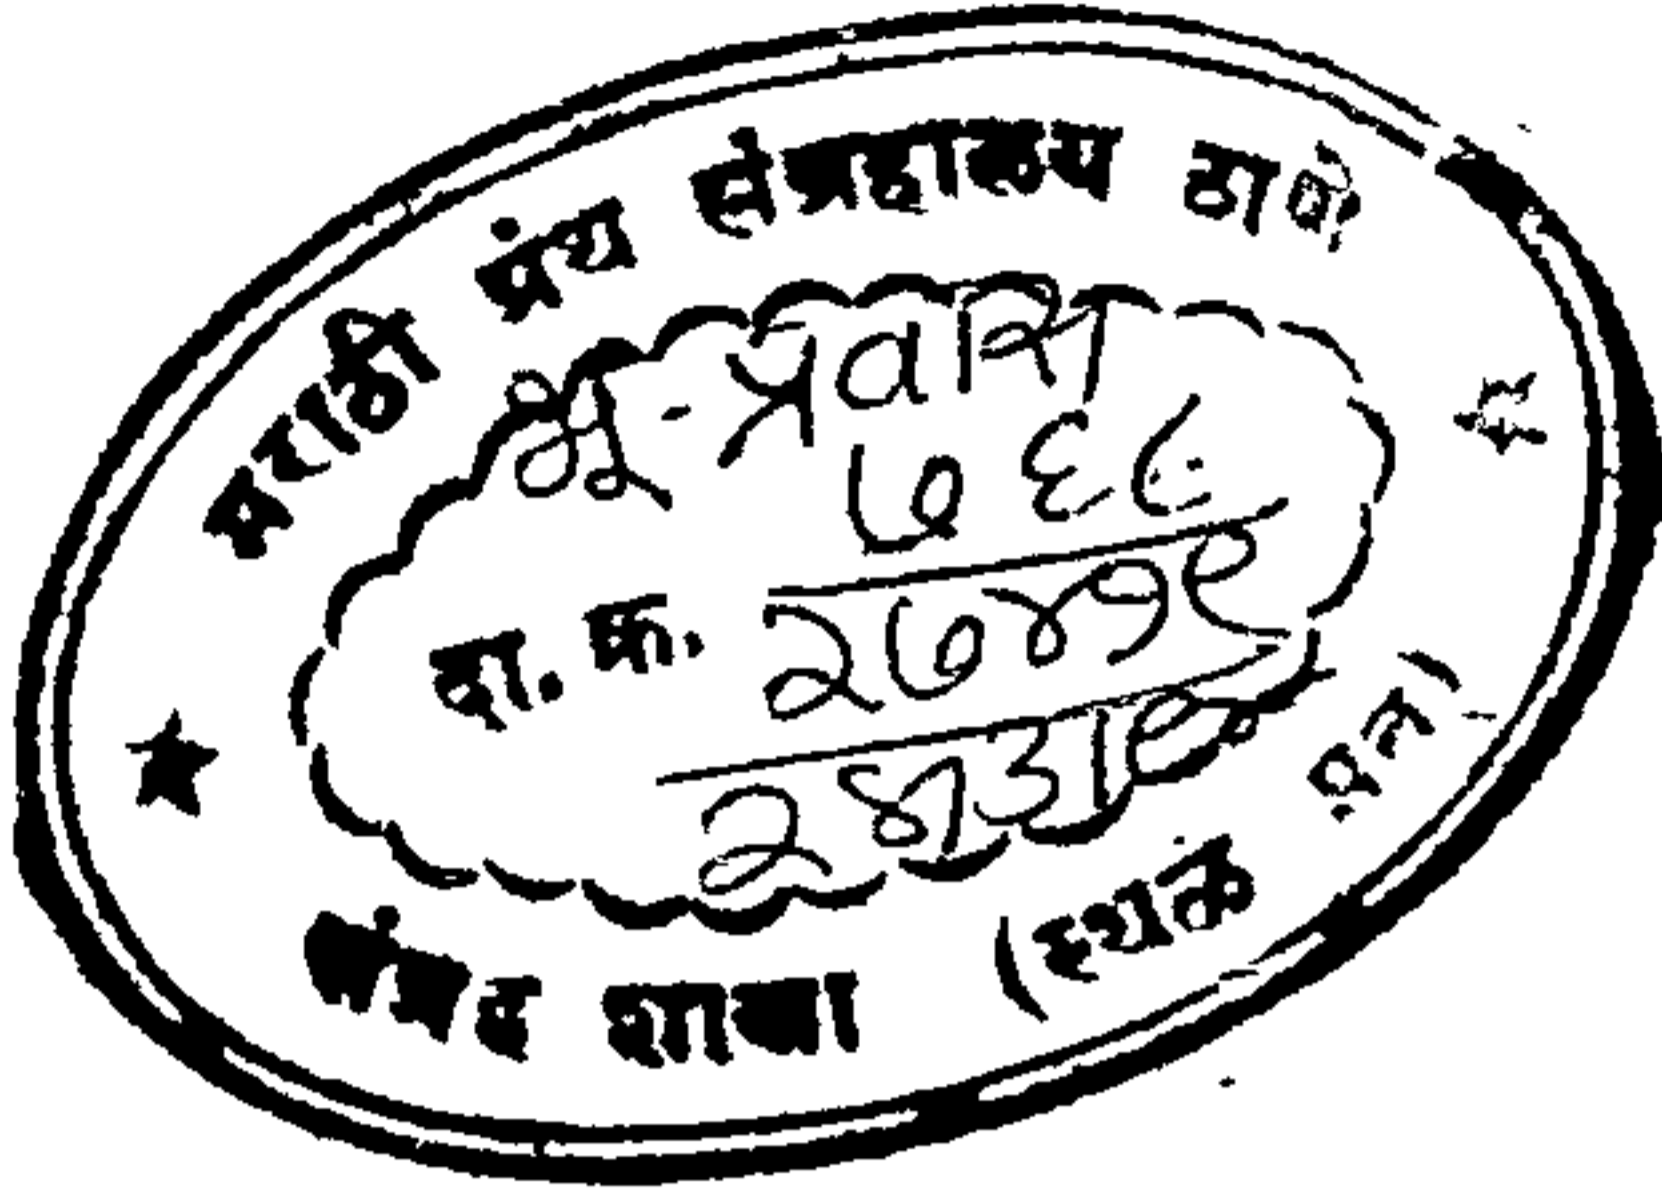 मराठी ग्रंथ संग्रहालय ठाणे
भू-प्रवास
७६८
दा. क्र. २७४१९
संग्रह शाखा (स्थळ प्रत)